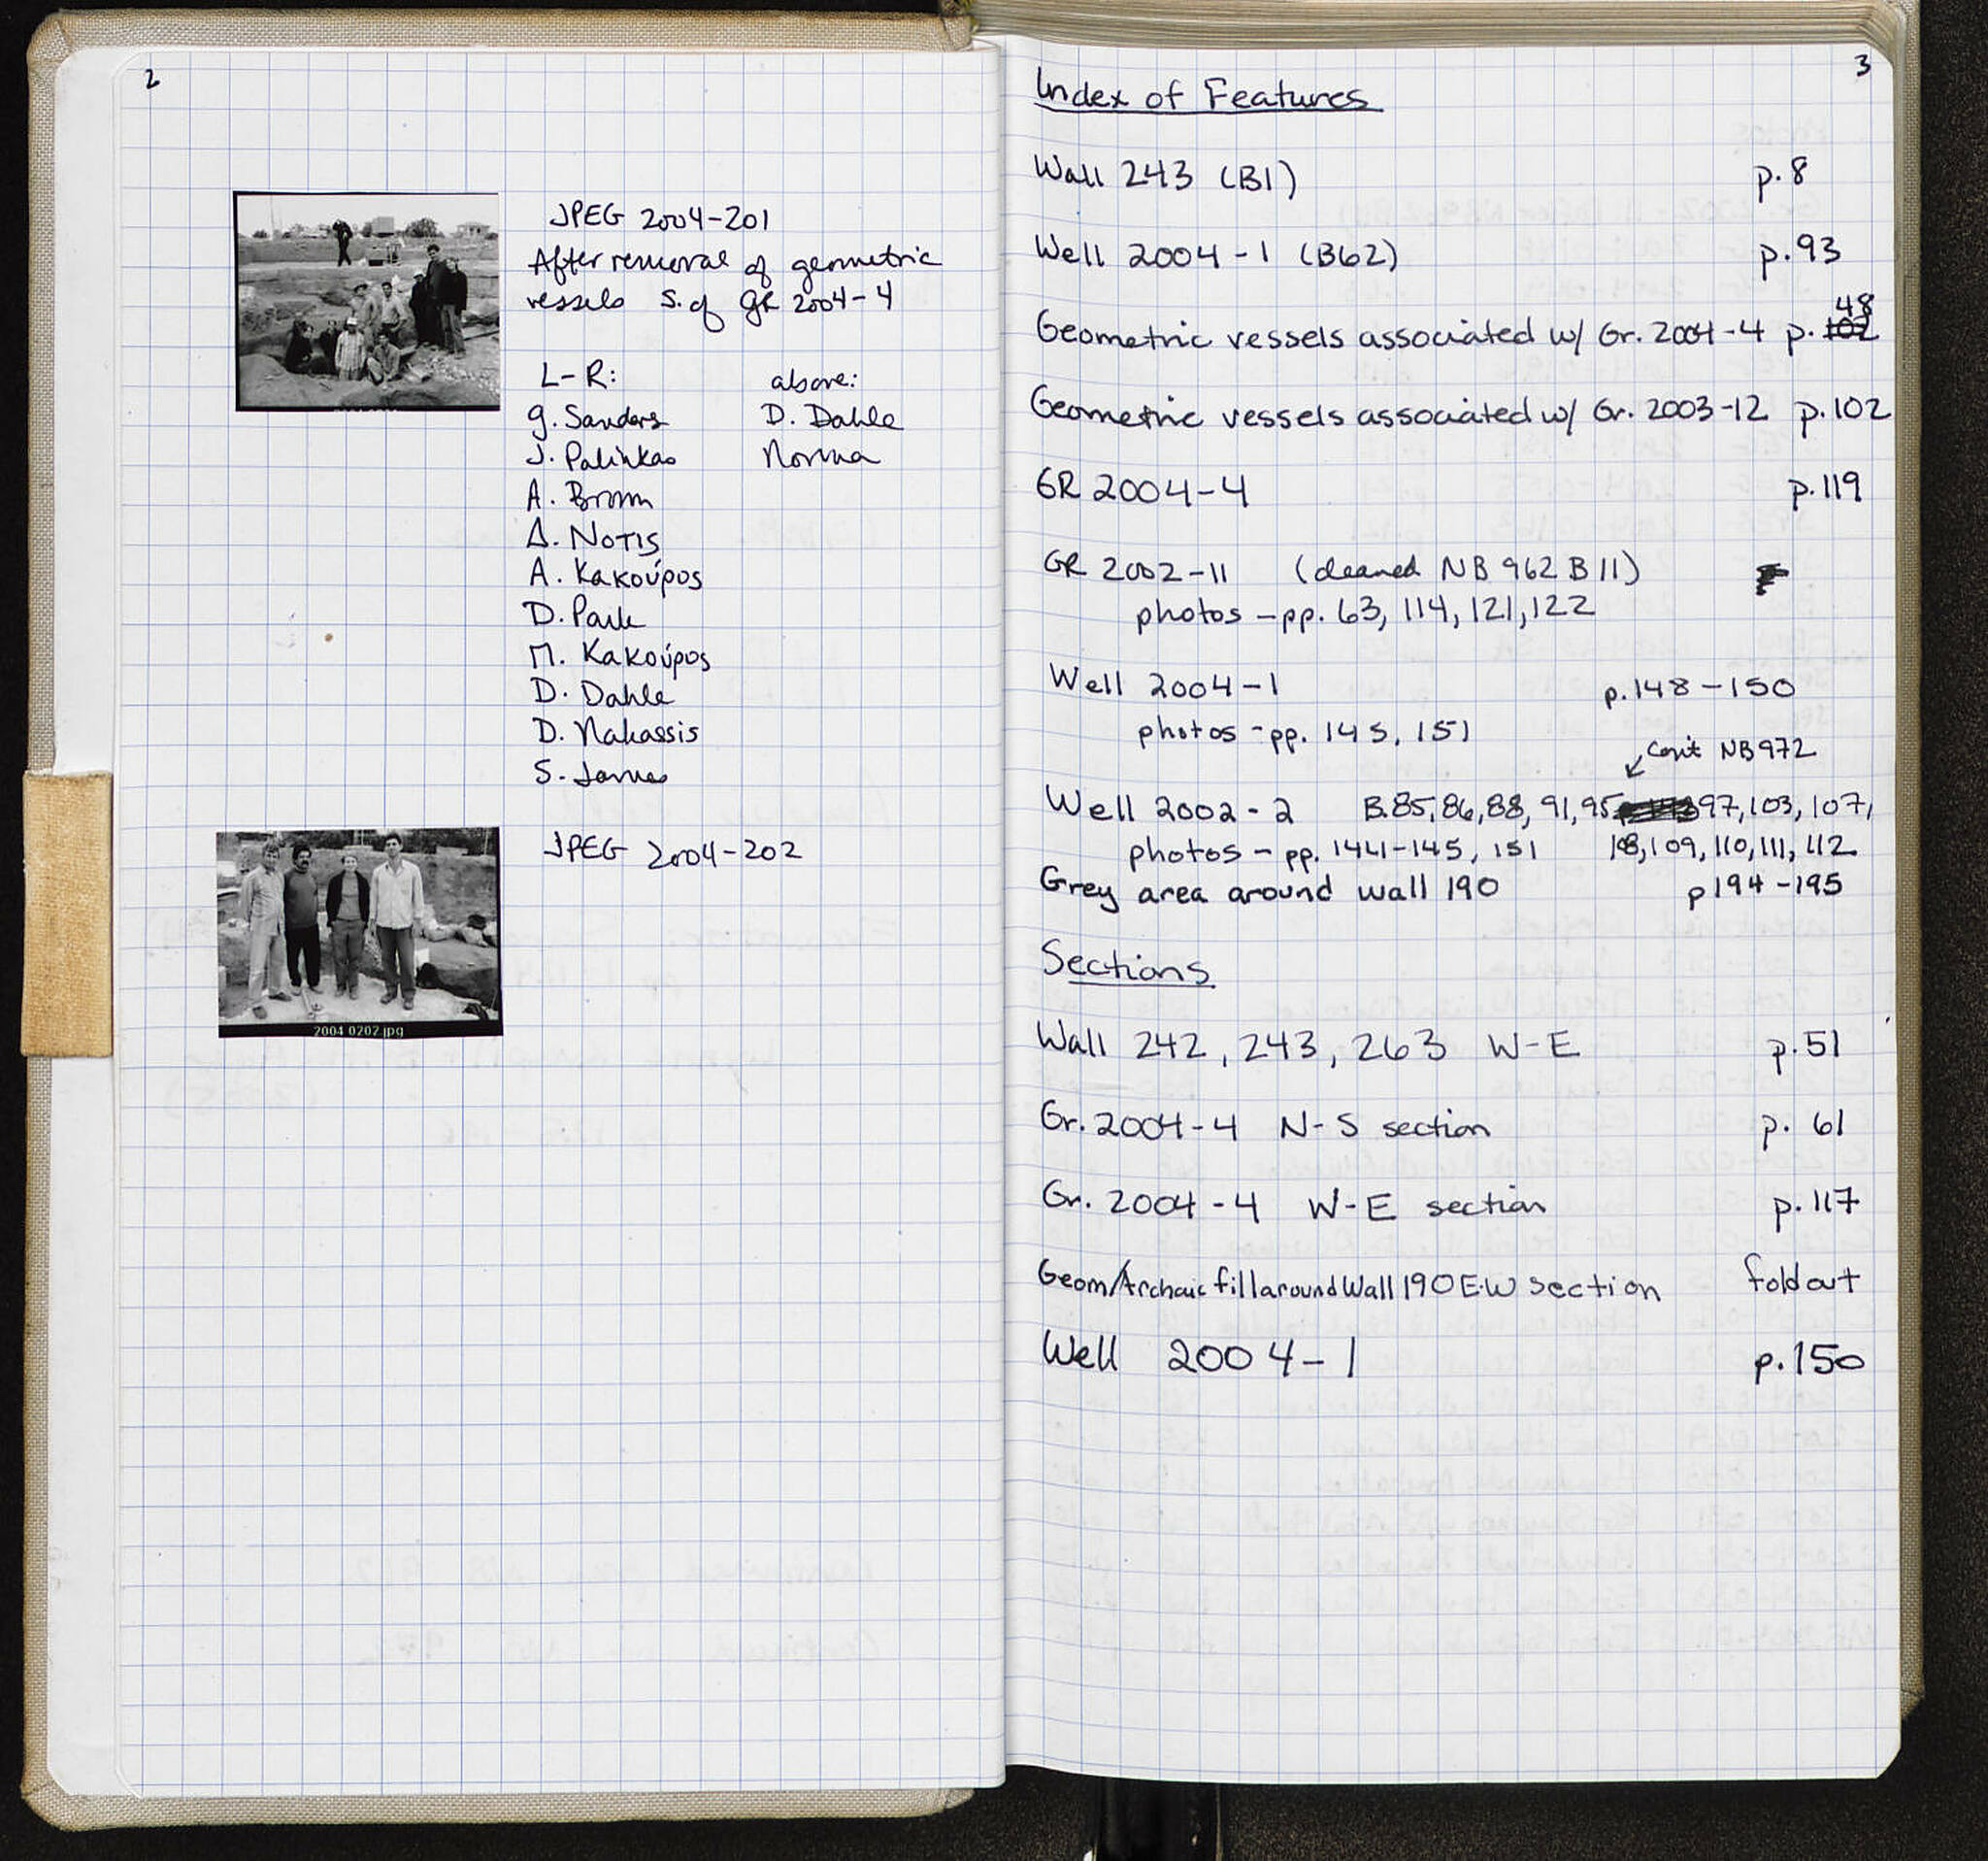 2
JPEG 2004-201
After removal of geometric
vessels S. of GR 2004-4
L-R:
above:
G. Sanders
D. Dahle
J. Palinkas
Norma
A. Brown
Δ. Νοτις
A. Κακούρος
D. Park
Π. Κακούρος
D. Dahle
D. Nakassis
S. James
JPEG 2004-202
2004 0202.jpg
3
Index of Features
Wall 243 (B1) p.8
Well 2004-1 (B62) p.93
Geometric vessels associated w/ Gr. 2004-4 p. 102 48
Geometric vessels associated w/ Gr. 2003-12 p.102
GR 2004-4 p.119
GR 2002-11 (cleaned NB 962 B11)
photos - pp. 63, 114, 121, 122
Well 2004-1 p.148-150
photos - pp. 145, 151
Con't NB972
Well 2002-2 B.85,86,88,91,95, 97,103,107,
photos - pp. 144-145, 151 108,109,110,111,112
Grey area around wall 190 p194-195
Sections
Wall 242, 243, 263 W-E p.51
Gr. 2004-4 N-S section p. 61
Gr. 2004-4 W-E section p.117
Geom/Archaic fill around Wall 190 E-W section fold out
Well 2004-1 p.150